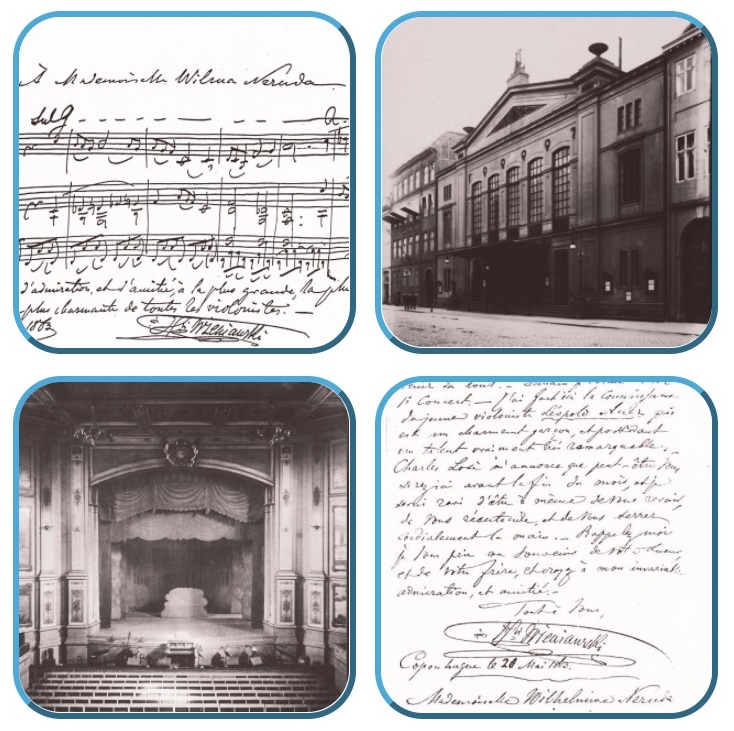 À Mademoiselle Wilma Neruda
sul G
d'admiration, et d'amitié, à la plus grande, la plus
plus charmante de toutes les violonistes. —
1863
Hri Wieniawski
1r Concert. — J'ai fait ici la connaissance
du jeune violoniste Léopold Auer qui
est un charmant garçon, et possédant
un talent vraiment très remarquable.
Charles Lose m'annonce que peut-être vous
avant la fin du mois, et je
serai ravi d'être à même de vous revoir,
de vous réentendre, et de vous serrer
cordialement la main. — Rappelez moi
je vous prie au souvenir de
et de votre frère, et croyez à mon invariable
admiration, et amitié. —
Tout à Vous,
Hri Wieniawski
Copenhague le 20 Mai 1863.
Mademoiselle Wilhelmine Neruda